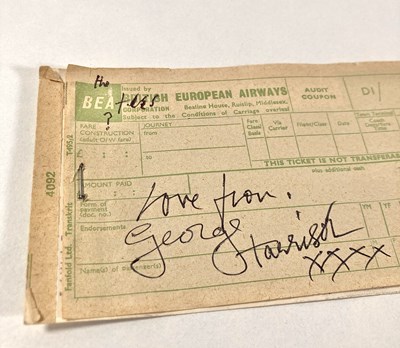 the
Issued by
BEA BRITISH EUROPEAN AIRWAYS
CORPORATION Bealine House, Ruislip, Middlesex.
Subject to the Conditions of Carriage overleaf
tles
?
AUDIT
COUPON
D1/
FARE
CONSTRUCTION
JOURNEY
from
to
Fare
Class
Basis
Via
Carrier
Flight/Class
Date
Time
THIS TICKET IS NOT TRANSFERA
also additional cash.
AMOUNT PAID
Form of
payment
(doc. no.)
Endorsements
Name(s) of passenger(s)
Love from,
George
Harrison
xxxx
4092
Fanfold Ltd. Transkrit